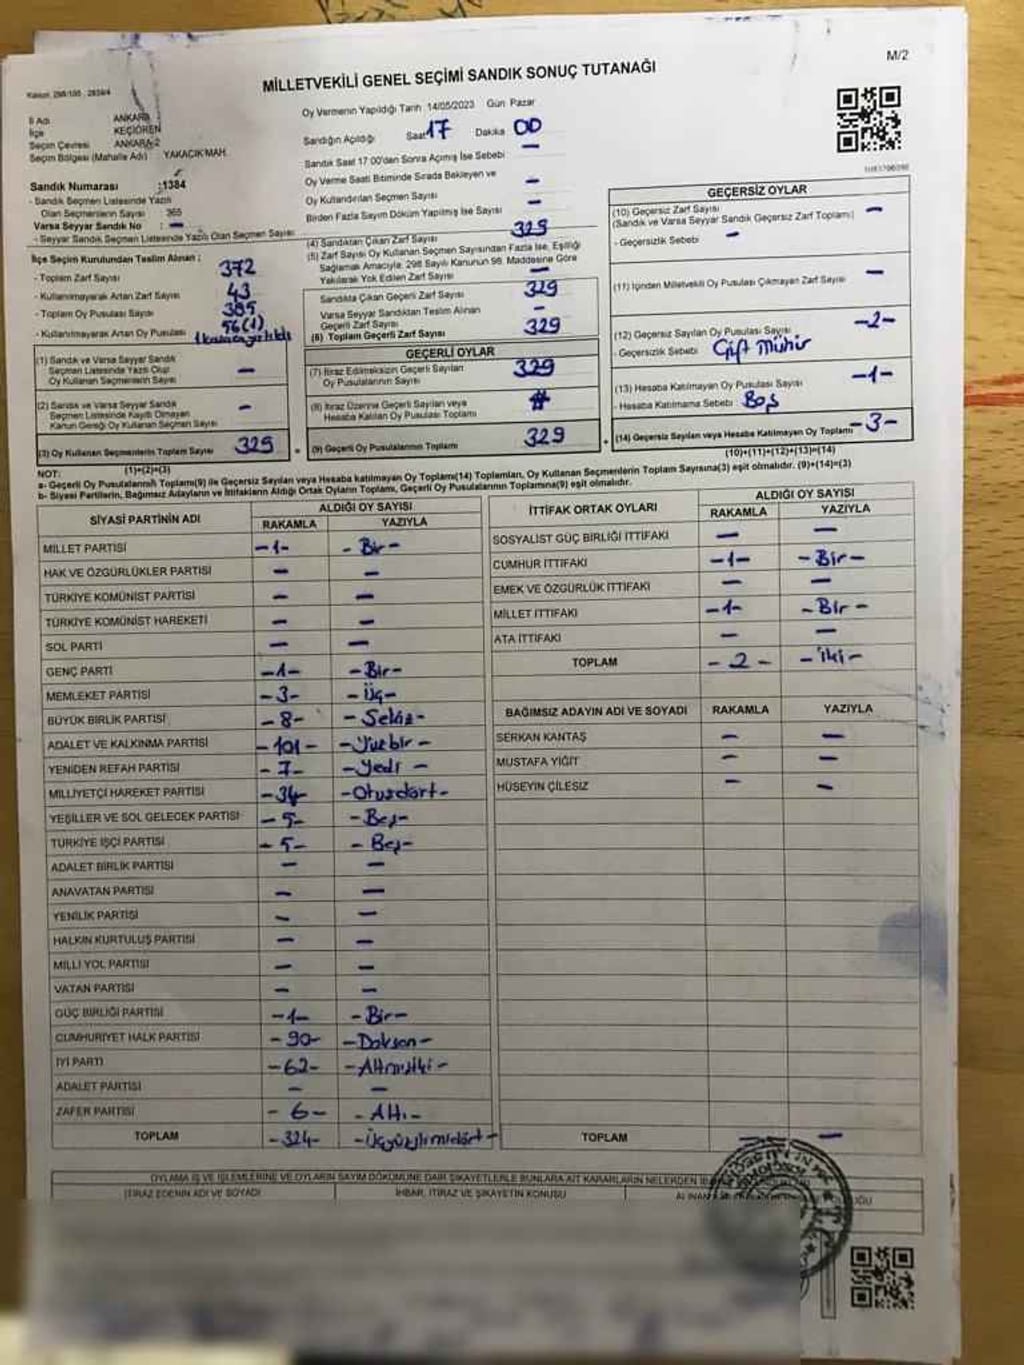 M/2
MİLLETVEKİLİ GENEL SEÇİMİ SANDIK SONUÇ TUTANAĞI
İl Adı ANKARA
İlçe KEÇİÖREN
Seçim Çevresi ANKARA-2
Seçim Bölgesi (Mahalle Adı) YAKACIK MAH.
Sandık Numarası :1384
- Sandık Seçmen Listesinde Yazılı
Olan Seçmenlerin Sayısı 365
Varsa Seyyar Sandık No : -
- Seyyar Sandık Seçmen Listesinde Yazılı Olan Seçmen Sayısı
İlçe Seçim Kurulundan Teslim Alınan :
- Toplam Zarf Sayısı 372
- Kullanılmayarak Artan Zarf Sayısı 43
- Toplam Oy Pusulası Sayısı 385
- Kullanılmayarak Artan Oy Pusulası 56(1)
(1) Sandık ve Varsa Seyyar Sandık
Seçmen Listesinde Yazılı Olup
Oy Kullanan Seçmenlerin Sayısı -
(2) Sandık ve Varsa Seyyar Sandık
Seçmen Listesinde Kayıtlı Olmayan
Kanun Gereği Oy Kullanan Seçmen Sayısı -
(3) Oy Kullanan Seçmenlerin Toplam Sayısı 329
(1)+(2)=(3)
Oy Vermenin Yapıldığı Tarih 14/05/2023 Gün Pazar
Sandığın Açıldığı Saat 17 Dakika 00
Sandık Saat 17.00'den Sonra Açılmış İse Sebebi -
Oy Verme Saati Bitiminde Sırada Bekleyen ve
Oy Kullandırılan Seçmen Sayısı -
Birden Fazla Sayım Döküm Yapılmış İse Sayısı -
(4) Sandıktan Çıkan Zarf Sayısı 329
(5) Zarf Sayısı Oy Kullanan Seçmen Sayısından Fazla İse, Eşitliği
Sağlamak Amacıyla, 298 Sayılı Kanunun 98. Maddesine Göre
Yakılarak Yok Edilen Zarf Sayısı -
Sandıkta Çıkan Geçerli Zarf Sayısı 329
Varsa Seyyar Sandıktan Teslim Alınan
Geçerli Zarf Sayısı -
(6) Toplam Geçerli Zarf Sayısı 329
GEÇERLİ OYLAR
(7) İtiraz Edilmeksizin Geçerli Sayılan
Oy Pusulalarının Sayısı 329
(8) İtiraz Üzerine Geçerli Sayılan veya
Hesaba Katılan Oy Pusulası Toplamı
(9) Geçerli Oy Pusulalarının Toplamı 329
GEÇERSİZ OYLAR
(10) Geçersiz Zarf Sayısı
(Sandık ve Varsa Seyyar Sandık Geçersiz Zarf Toplamı) -
- Geçersizlik Sebebi -
(11) İçinden Milletvekili Oy Pusulası Çıkmayan Zarf Sayısı -
(12) Geçersiz Sayılan Oy Pusulası Sayısı -2-
- Geçersizlik Sebebi Çift Mühür
(13) Hesaba Katılmayan Oy Pusulası Sayısı -1-
- Hesaba Katılmama Sebebi Boş
(14) Geçersiz Sayılan veya Hesaba Katılmayan Oy Toplamı -3-
(10)+(11)+(12)+(13)=(14)
NOT:
a- Geçerli Oy Pusulalarının Toplamı(9) ile Geçersiz Sayılan veya Hesaba katılmayan Oy Toplamı(14) Toplamları, Oy Kullanan Seçmenlerin Toplam Sayısına(3) eşit olmalıdır. (9)+(14)=(3)
b- Siyasi Partilerin, Bağımsız Adayların ve İttifakların Aldığı Ortak Oyların Toplamı, Geçerli Oy Pusulalarının Toplamına(9) eşit olmalıdır.
SİYASİ PARTİNİN ADI ALDIĞI OY SAYISI
RAKAMLA YAZIYLA
MİLLET PARTİSİ -1- -Bir-
HAK VE ÖZGÜRLÜKLER PARTİSİ - -
TÜRKİYE KOMÜNİST PARTİSİ - -
TÜRKİYE KOMÜNİST HAREKETİ - -
SOL PARTİ - -
GENÇ PARTİ -1- -Bir-
MEMLEKET PARTİSİ -3- -Üç-
BÜYÜK BİRLİK PARTİSİ -8- -Sekiz-
ADALET VE KALKINMA PARTİSİ -101- -Yüzbir-
YENİDEN REFAH PARTİSİ -7- -Yedi-
MİLLİYETÇİ HAREKET PARTİSİ -34- -Otuzdört-
YEŞİLLER VE SOL GELECEK PARTİSİ -5- -Beş-
TÜRKİYE İŞÇİ PARTİSİ -5- -Beş-
ADALET BİRLİK PARTİSİ - -
ANAVATAN PARTİSİ - -
YENİLİK PARTİSİ - -
HALKIN KURTULUŞ PARTİSİ - -
MİLLİ YOL PARTİSİ - -
VATAN PARTİSİ - -
GÜÇ BİRLİĞİ PARTİSİ -1- -Bir-
CUMHURİYET HALK PARTİSİ -90- -Doksan-
İYİ PARTİ -62- -Altmışiki-
ADALET PARTİSİ - -
ZAFER PARTİSİ -6- -Altı-
TOPLAM -324- -Üçyüzyirmidört-
İTTİFAK ORTAK OYLARI ALDIĞI OY SAYISI
RAKAMLA YAZIYLA
SOSYALİST GÜÇ BİRLİĞİ İTTİFAKI - -
CUMHUR İTTİFAKI -1- -Bir-
EMEK VE ÖZGÜRLÜK İTTİFAKI - -
MİLLET İTTİFAKI -1- -Bir-
ATA İTTİFAKI - -
TOPLAM -2- -İki-
BAĞIMSIZ ADAYIN ADI VE SOYADI RAKAMLA YAZIYLA
SERKAN KANTAŞ - -
MUSTAFA YİĞİT - -
HÜSEYİN ÇİLESİZ - -
TOPLAM - -
OYLAMA İŞ VE İŞLEMLERİNE VE OYLARIN SAYIM DÖKÜMÜNE DAİR ŞİKAYETLERLE BUNLARA AİT KARARLARIN NELERDEN
İTİRAZ EDENİN ADI VE SOYADI İHBAR, İTİRAZ VE ŞİKAYETİN KONUSU